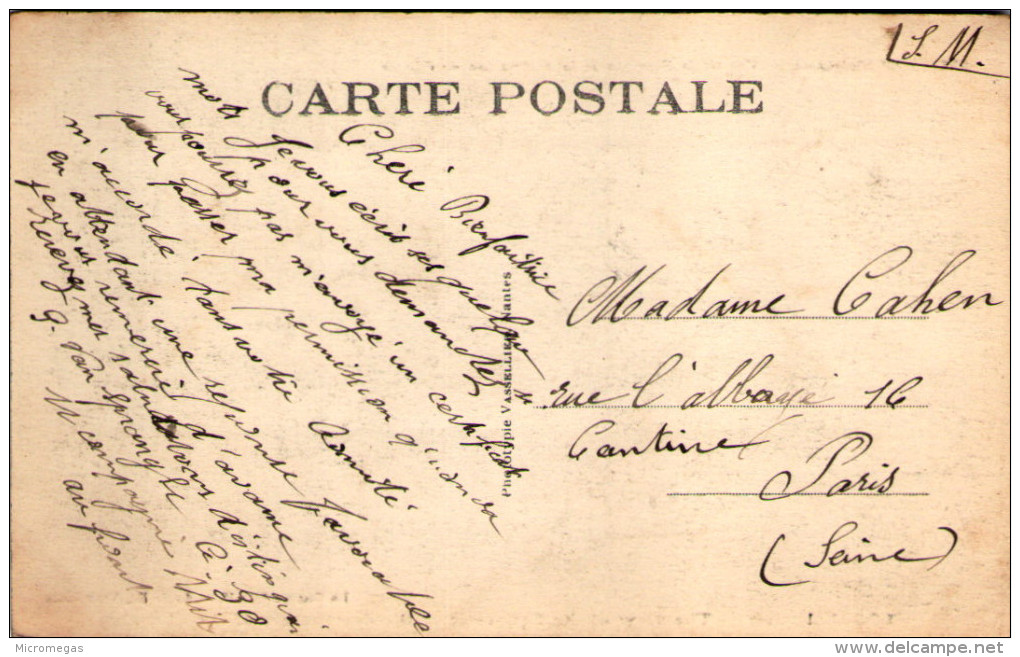 S. M.
CARTE POSTALE
Cheré Bienfaitrice
Je vous écris ses quelque
mots pour vous demandez si
vous pourrez pas m'envoyé un certificat
pour passer ma permission qu'on va
m'accordé dans votre comité
en attendant une reponse favorable
je vous remercie d'avance
Recevez mes salutations
G. Van Spranghe C. 30
compagnie
au front
Phototypie VASSELLIER, Nantes
Madame Cahen
rue l'abbaye 16
Cantine
Paris
(Seine)
Micromegas
delcampe.net